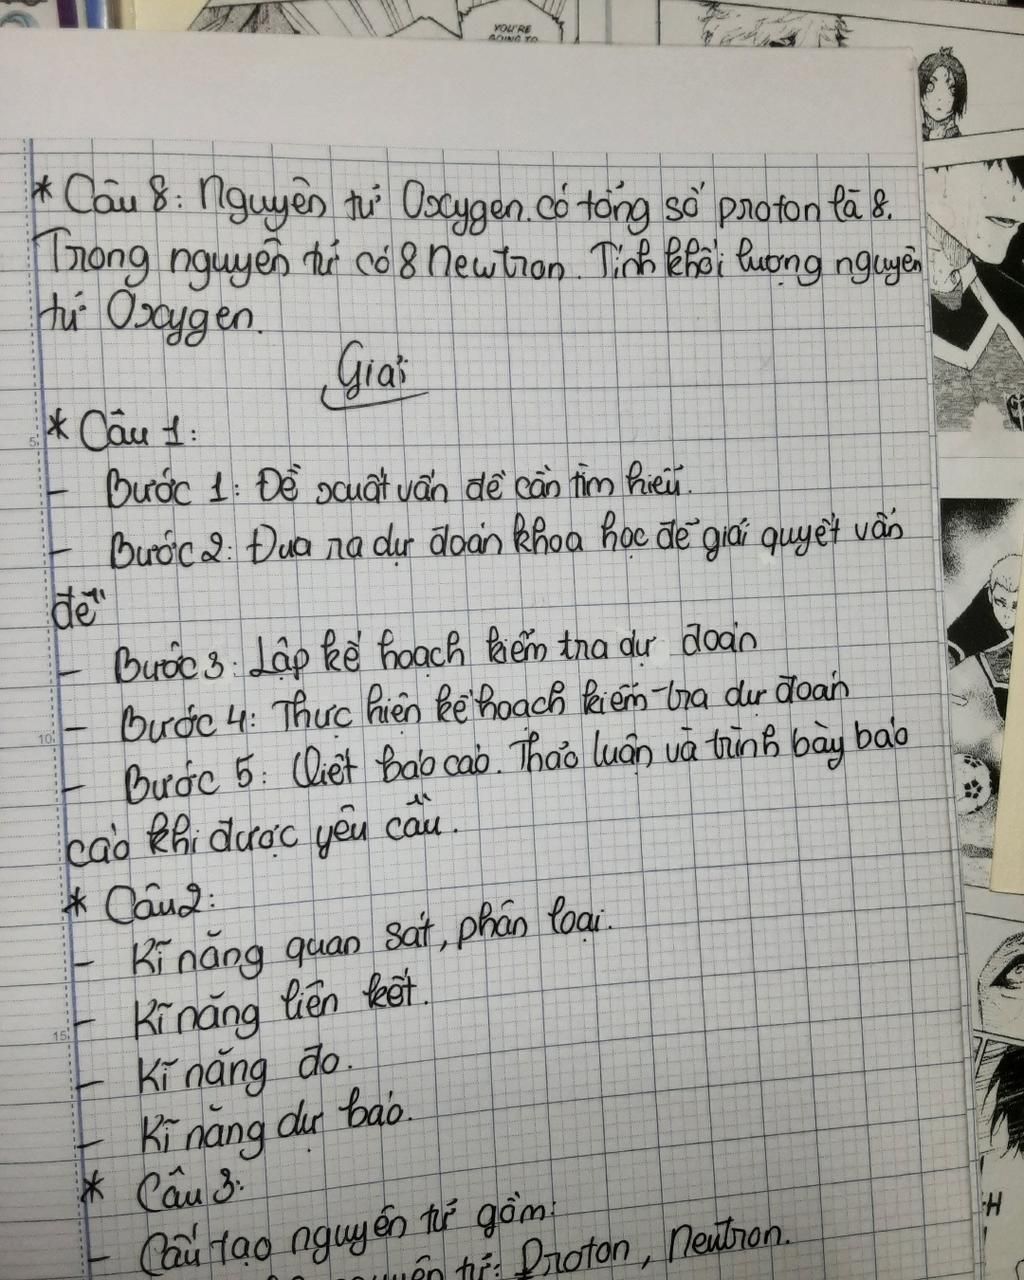 YOU'RE
GOING TO
* Câu 8: Nguyên tử Oxygen có tổng số proton là 8.
Trong nguyên tử có 8 Newtron. Tính khối lượng nguyên
tử Oxygen.
Giải
* Câu 1:
- Bước 1: Đề xuất vấn đề cần tìm hiểu.
- Bước 2: Đưa ra dự đoán khoa học để giải quyết vấn
đề
- Bước 3: Lập kế hoạch kiểm tra dự đoán
- Bước 4: Thực hiện kế hoạch kiểm tra dự đoán
- Bước 5: Viết báo cáo. Thảo luận và trình bày báo
cáo khi được yêu cầu.
* Câu 2:
- Kĩ năng quan sát, phân loại.
- Kĩ năng liên kết.
- Kĩ năng đo.
- Kĩ năng dự báo.
* Câu 3:
- Cấu tạo nguyên tử gồm:
nguyên tử: Proton, Neutron.
5
10
15
-H